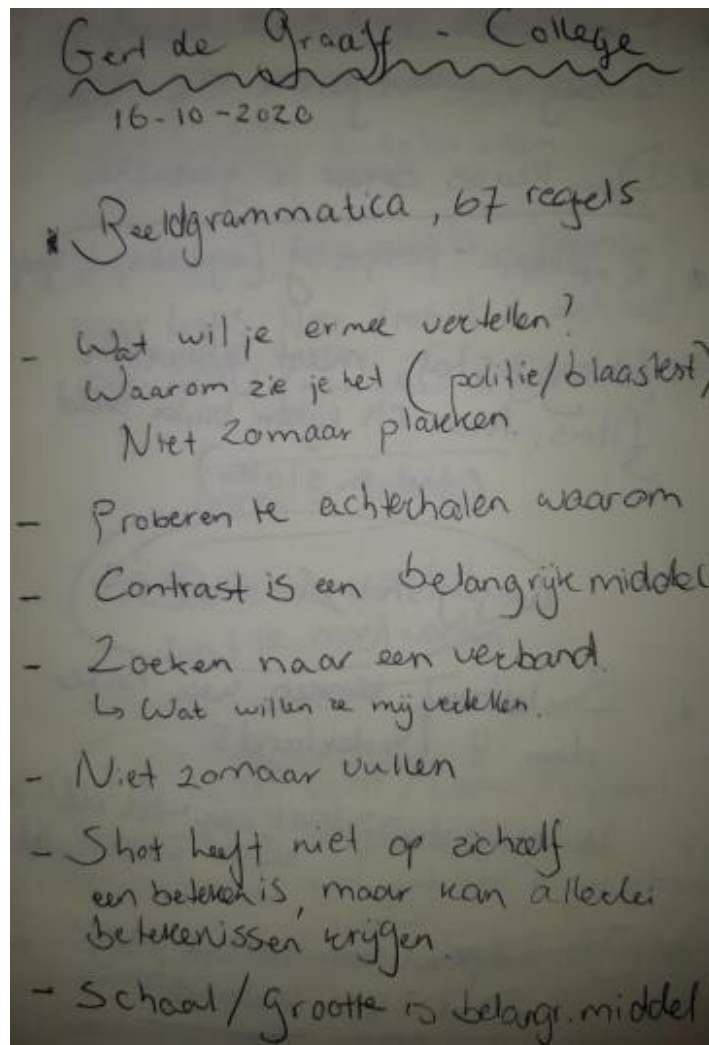 Gert de Graaff - College
16-10-2020
Beeldgrammatica, 67 regels
- Wat wil je ermee vertellen?
Waarom zie je het (politie/blaastest)
Niet zomaar plakken.
- Proberen te achterhalen waarom
- Contrast is een belangrijk middel
- Zoeken naar een verband.
↳ Wat willen ze mij vertellen.
- Niet zomaar vullen
- Shot heeft niet op zichzelf
een betekenis, maar kan allerlei
betekenissen krijgen.
- Schaal/Grootte is belangr. middel